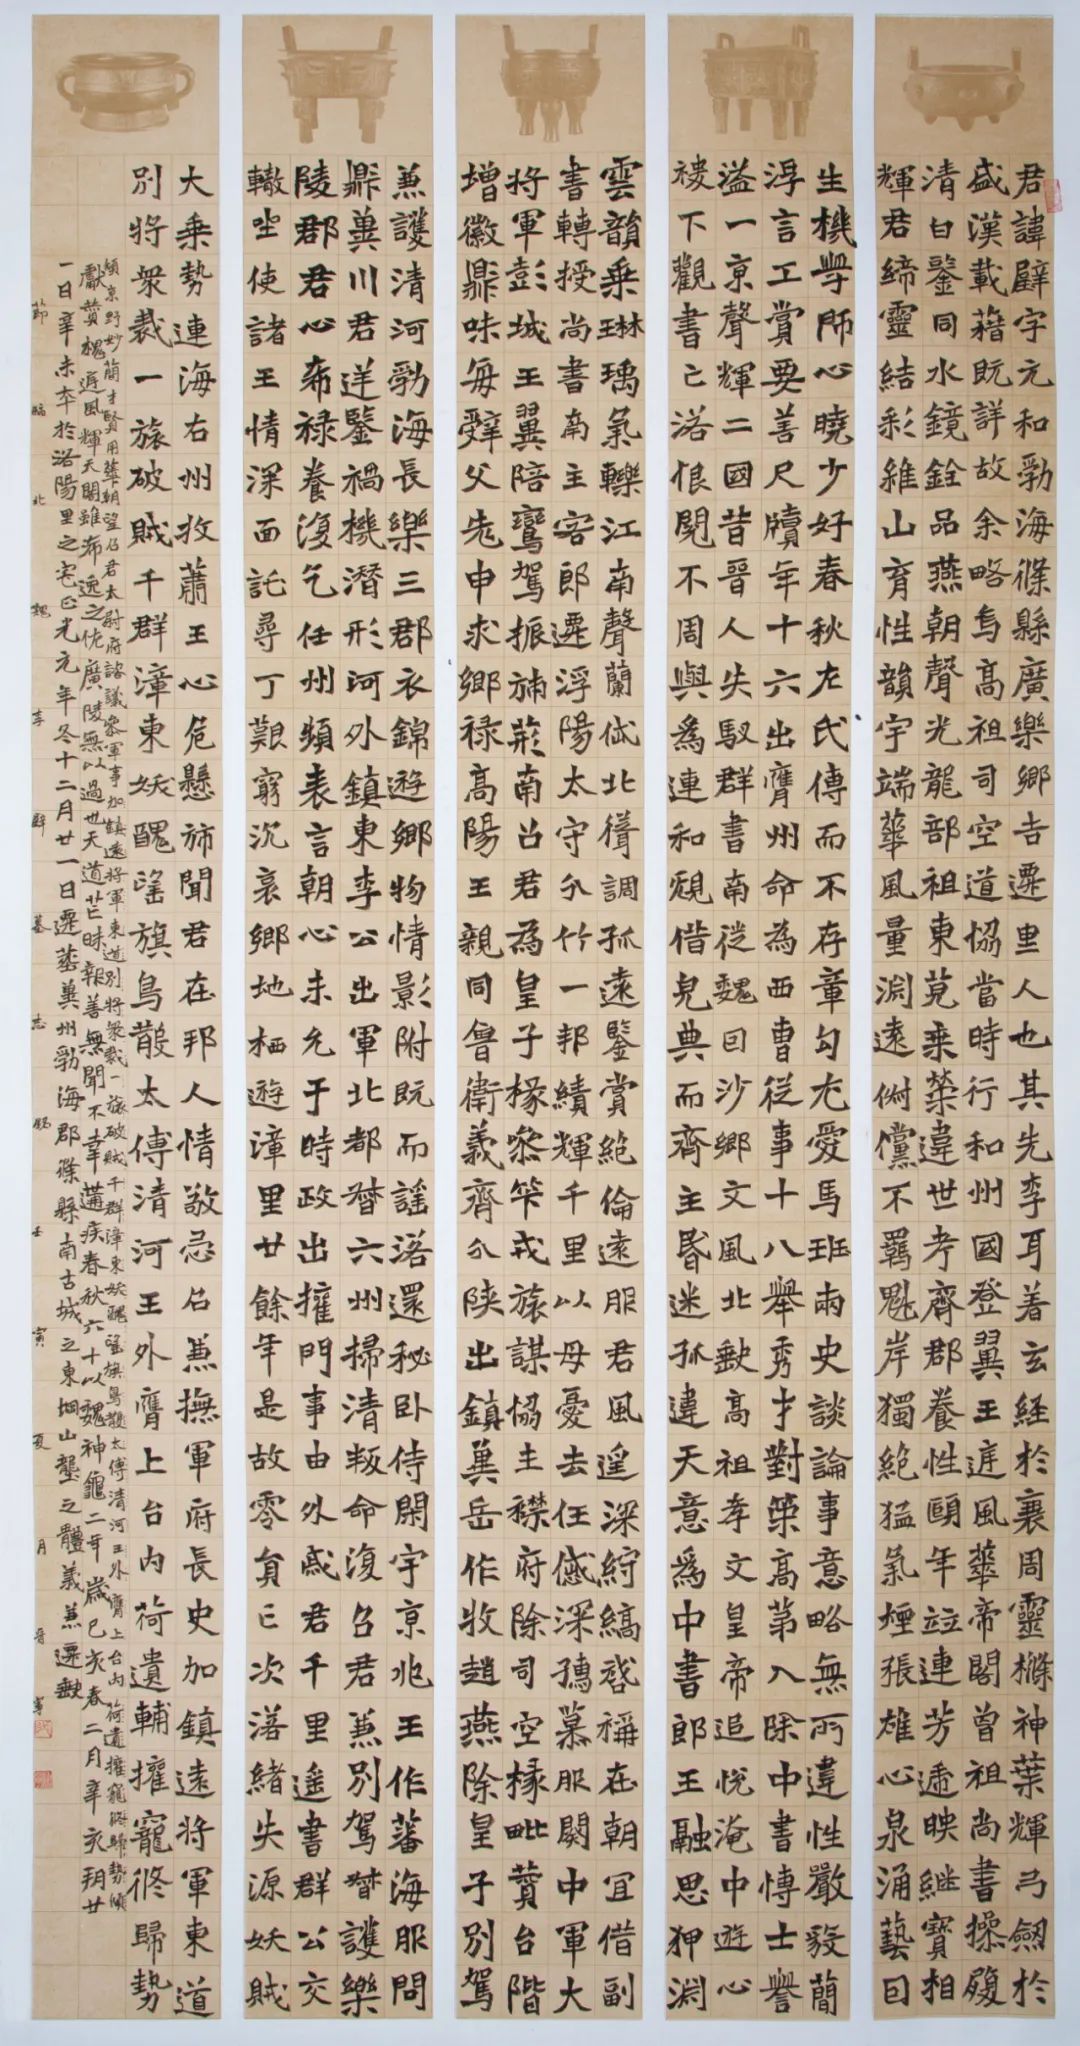 君諱璧字元和勃海條縣廣樂鄉吉遷里人也其先李耳著玄經於衰周靈櫾神葉輝弓劒於
盛漢載藉既詳故余略焉高祖司空道協當時行和州國登翼王庭風華帝閣曾祖尚書操履
清白鑒同水鏡銓品燕朝聲光龍部祖東莞乘榮違世考齊郡養性頤年竝連芳遞映繼寶相
輝君締靈結彩維山育性韻宇端華風量淵遠俶儻不羈魁岸獨絕猛氣煙張雄心泉涌藝因
生機學師心曉少好春秋左氏傳而不存章勾尤愛馬班兩史談論事意略無所違性嚴毅簡
浮言工賞要善尺牘年十六出膺州命為西曹從事十八舉秀才對策高第入除中書博士譽
溢一京聲輝二國昔晉人失馭群書南從魏因沙鄉文風北缺高祖孝文皇帝追悅淹中遊心
禝下觀書亡落恨閱不周與為連和規借完典而齊主昏迷孤違天意為中書郎王融思狎淵
雲韻乘琳瑀氣轢江南聲蘭岱北聳調孤遠鑒賞絕倫遠服君風遥深紵縞啓稱在朝宜借副
書轉授尚書南主客郎遷浮陽太守分竹一邦績輝千里以母憂去任慼深孺慕服闋中軍大
將軍彭城王翼陪鸞駕振旆荊南召君為皇子掾參筞戎旅謀協主襟府除司空掾毗贊台階
增徽鼎味每辭父老申求鄉祿高陽王親同魯衛義齊分陝出鎮冀岳作牧趙燕除皇子別駕
兼護清河勃海長樂三郡衣錦遊鄉物情影附既而謠落還秘卧侍閑宇京兆王作蕃海服問
鼎冀川君逆鑒禍機潛形河外鎮東李公出軍北都督六州掃清叛命復召君兼別駕督護樂
陵郡君心希祿養復乞任州頻表言朝心未允于時政出擁門事由外慼君千里遙書群公交
轍坐使諸王情深面託尋丁艱窮沉哀鄉地栖遊漳里廿餘年是故零貟亡次落緒失源妖賊
大乘勢連海右州牧蕭王心危懸旆聞君在邦人情敬忌召兼撫軍府長史加鎮遠將軍東道
別將衆裁一旅破賊千群漳東妖醜望旗鳥散太傅清河王外膺上台內荷遺輔擁寵脩歸勢
傾京野妙簡才賢用華朝望乃君太尉府諮議參軍事加鎮遠將軍東道別將衆裁一旅破賊千群漳東妖醜望旗鳥散太傅清河王外膺上台內荷遺擁寵脩歸勢傾
獻贊槐遲風輝天閣雖希逸之佐廣陵無以過也天道芒昧報善無聞不幸遘疾春秋六十以魏神龜二年歲己亥春二月辛亥朔廿
一日辛未卒於洛陽里之宅正光元年冬十二月廿一日遷葬冀州勃海郡條縣南古城之東堈山壟之體義兼遷缺
節臨北魏李璧墓志銘壬寅夏月